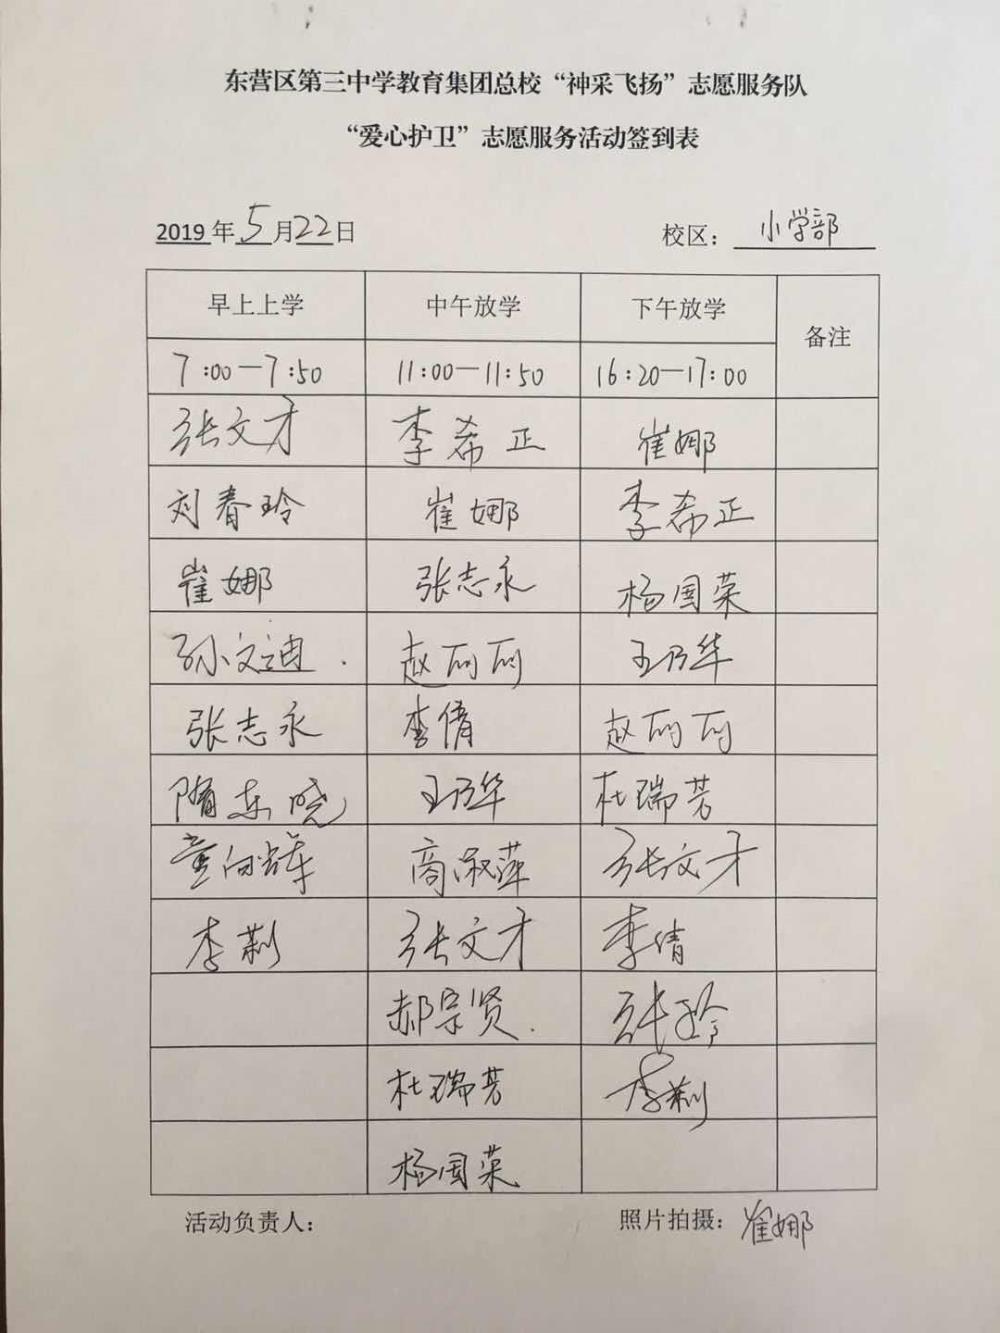 东营区第三中学教育集团总校“神采飞扬”志愿服务队
“爱心护卫”志愿服务活动签到表
2019年5月22日 校区：小学部
早上上学 中午放学 下午放学 备注
7:00—7:50 11:00—11:50 16:20—17:00
张文才 李希正 崔娜
刘春玲 崔娜 李希正
崔娜 张志永 杨国荣
孙文迪. 赵丽丽 王乃华
张志永 李倩 赵丽丽
隋东晓 王乃华 杜瑞芳
童向辉 商淑萍 张文才
李莉 张文才 李倩
郝宗贤. 张玲
杜瑞芳 李莉
杨国荣
活动负责人： 照片拍摄：崔娜